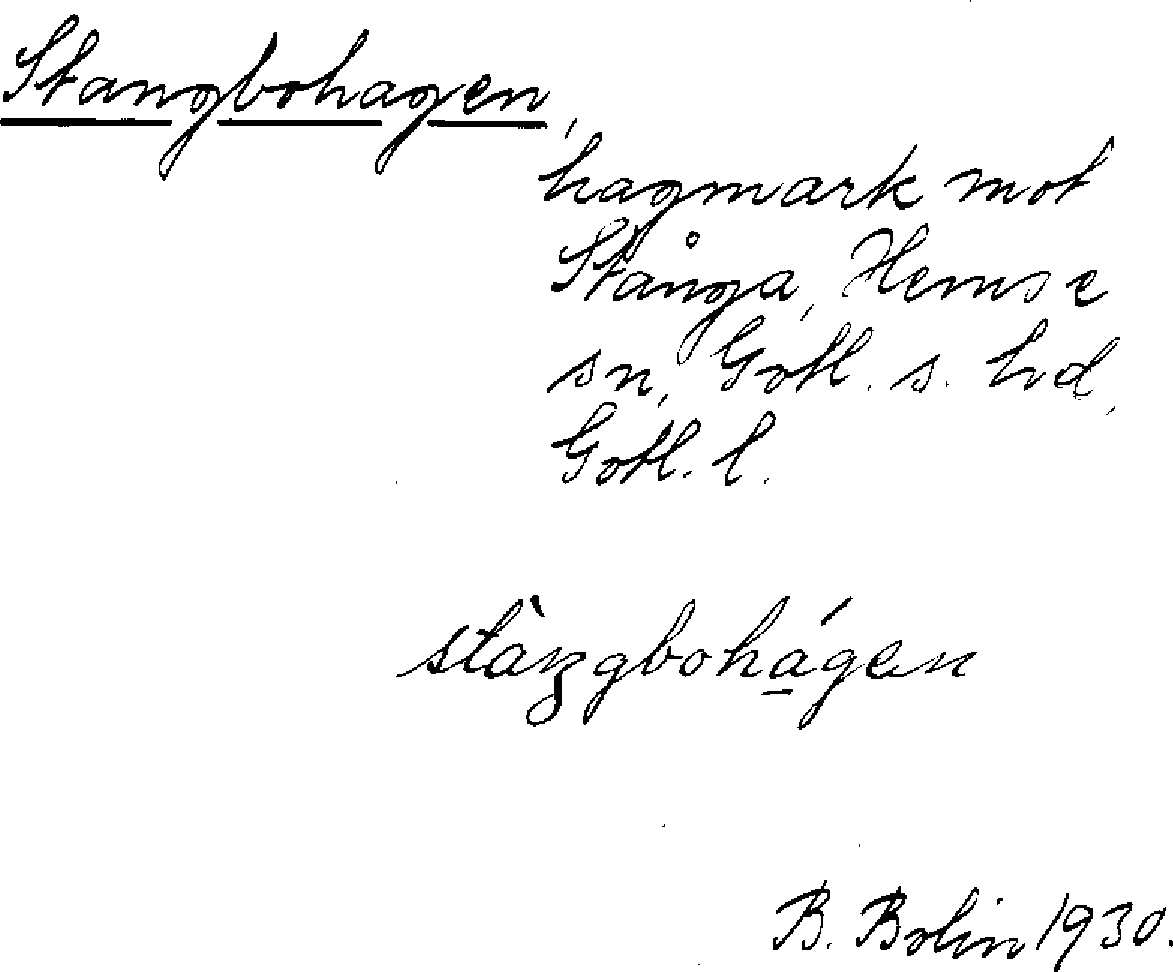 Stangbohagen,
hagmark mot
Stånga, Hemse
sn, Gotl. s. hd,
Gotl. l.
stàŋgbohá̱gen
B. Bolin 1930.